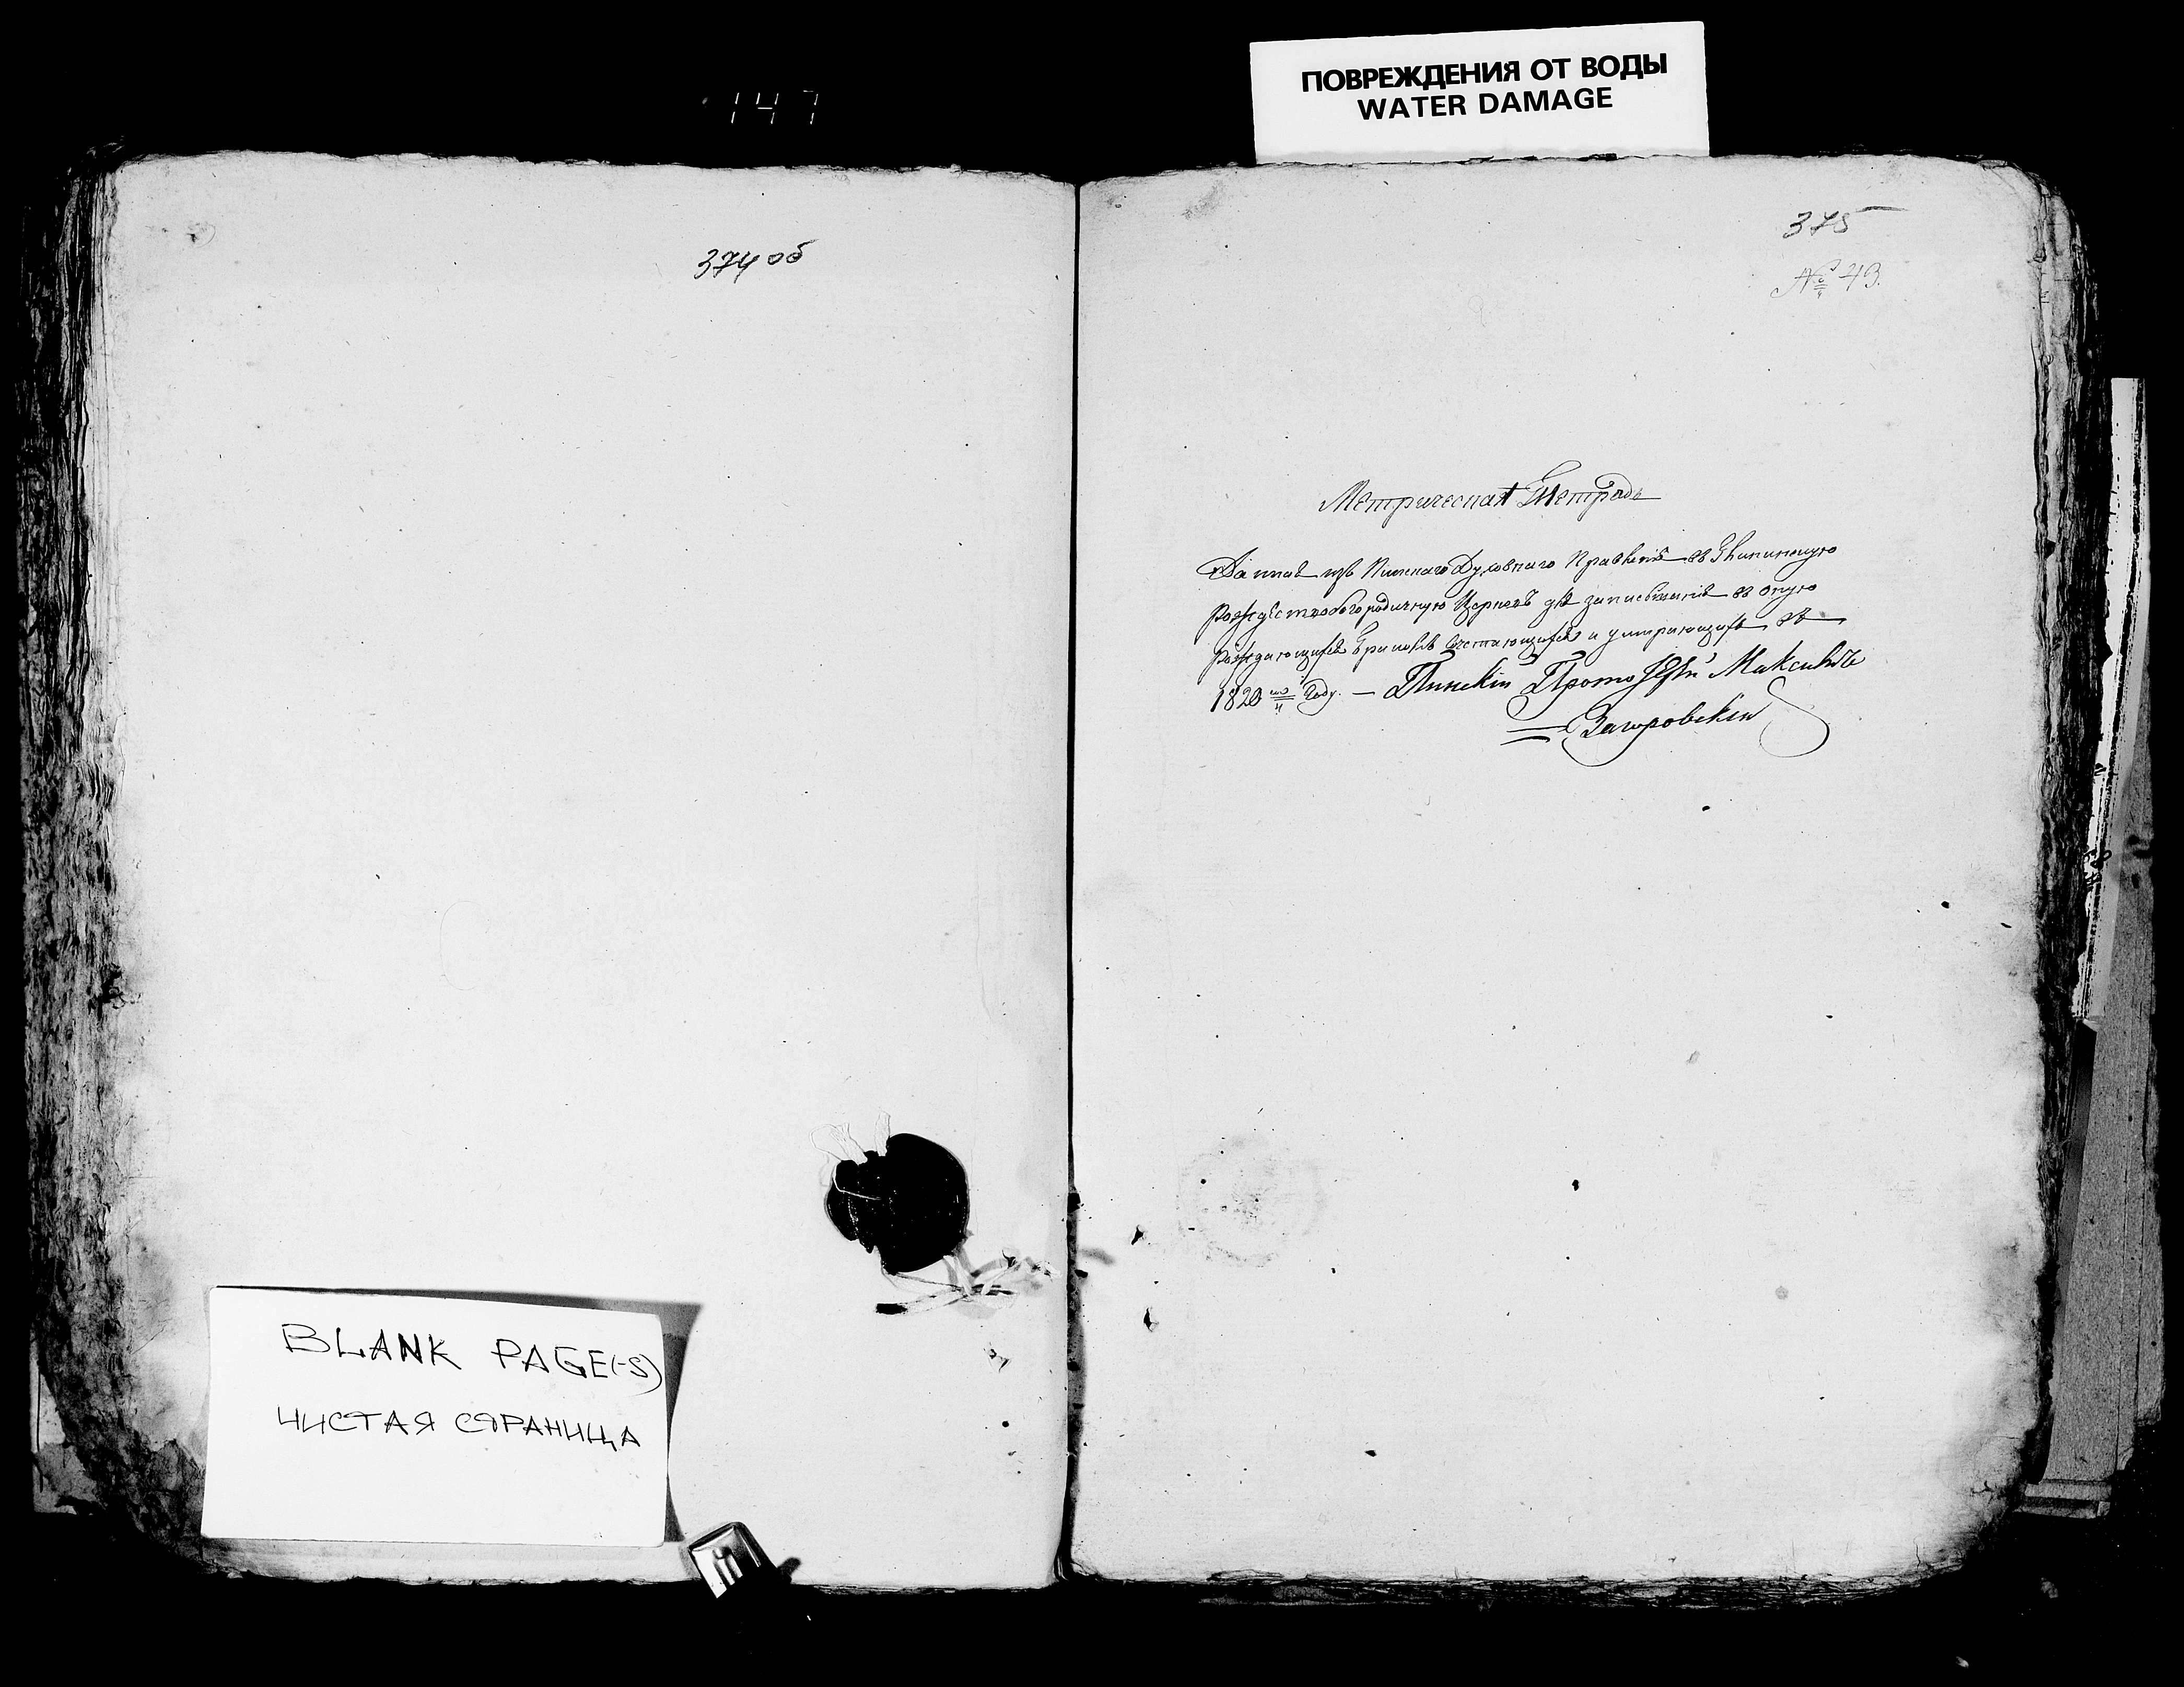 147
ПОВРЕЖДЕНИЯ ОТ ВОДЫ
WATER DAMAGE
374 об
375
№ 43.
Метрическая Тетрадь
Данная изъ Пинскаго Духовнаго Правленія въ
Рождествобогородичную Церковь для записыванія въ оную
Рождающихся Бракомъ Сочетающихся и умирающихъ въ
1820 мъ Году. — Пинскій ПротоІерей Максимъ
Загоровскій
BLANK PAGE(-S)
ЧИСТАЯ СТРАНИЦА